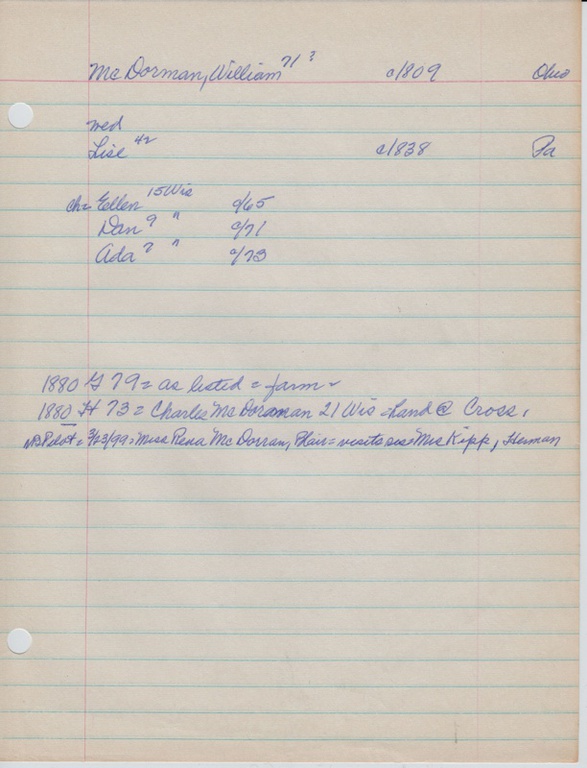 Mc Dorman, William 71? c/1809 Ohio
wed
Lise 42 c/1838 Pa
ch= Ellen 15 Wis c/65
Dan 9 " c/71
Ada 7 " c/73
1880 G 79 = as listed = farm
1880 H 73 = Charles Mc Dorman 21 Wis = hand @ Cross,
Pilot = 3/23/99 = Miss Rena Mc Dorman, Blair = visits sis Mrs Kipp, Herman